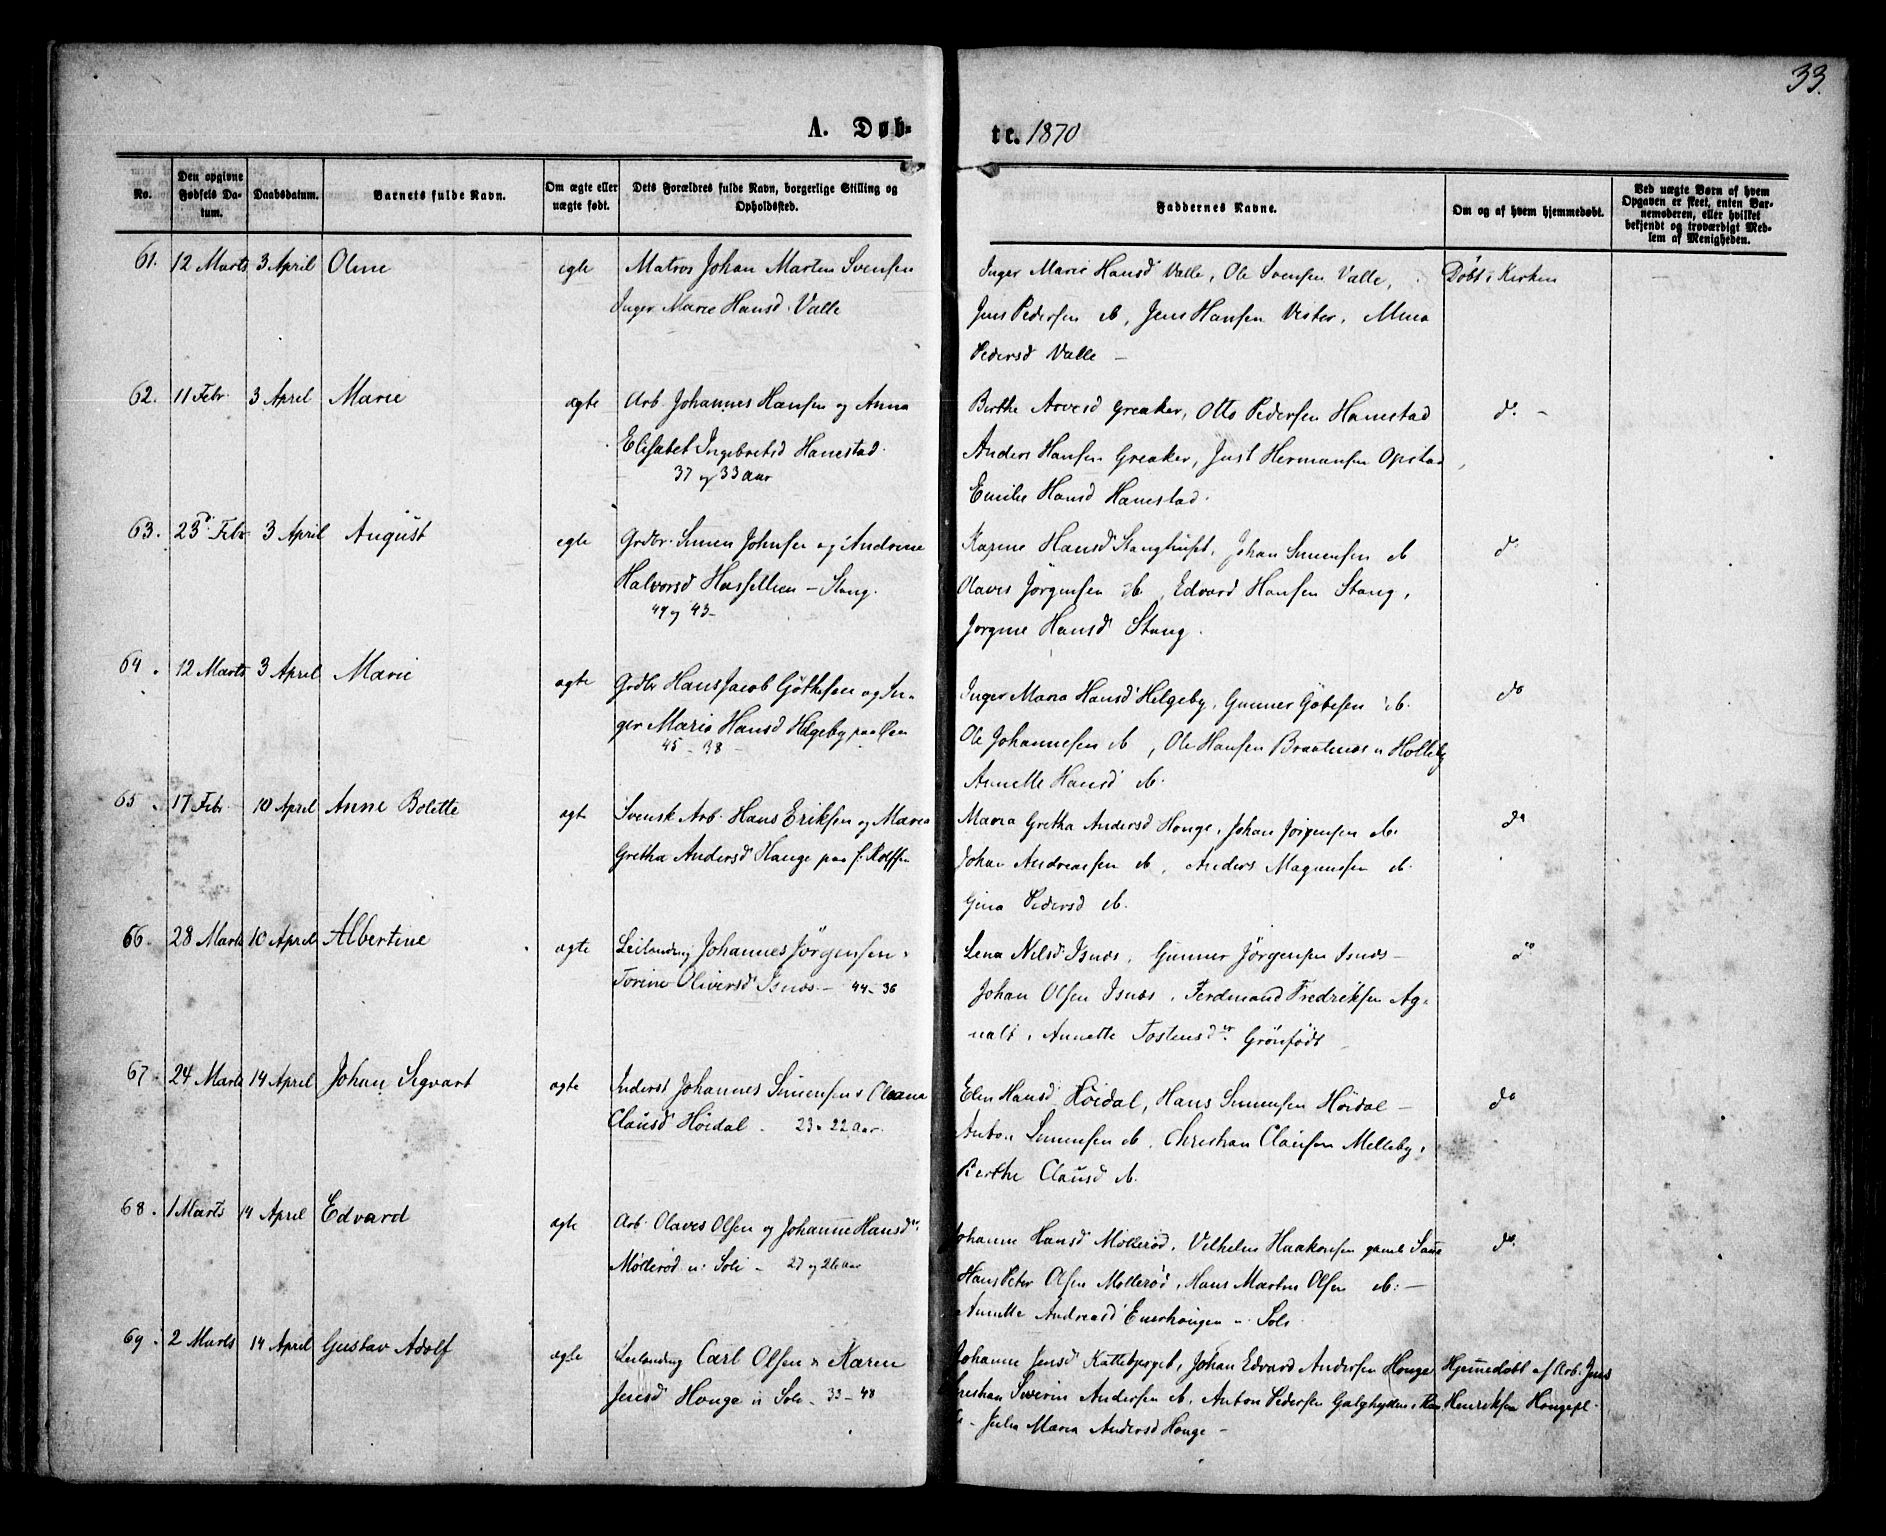 33.
A. Døb-
te. 1870
No.
Den opgivne Fødsels Da-tum.
Daabsdatum.
Barnets fulde Navn.
Om ægte eller uægte født.
Dets Forældres fulde Navn, borgerlige Stilling og Opholdssted.
Faddernes Navne.
Om og af hvem hjemmedøbt.
Ved uægte Børn af hvem Opgaven er skeet, enten Bar-nemoderen, eller hvilket bekjendt og troværdigt Med-lem af Menigheden.
61. 12 Marts 3 April Oline egte Matros Johan Marten Svensen
Inger Marie Hansd Valle
Inger Marie Hansd Valle, Ole Svensen Valle, Døbt i Kirken
Jens Pedersen ib, Jens Hansen Vister, Mina
Pedersd Valle —
62. 11 Febr. 3 April Marie ægte Arb Johannes Hansen og Anna
Elisabet Ingebretsd Hanestad.
37 og 33 aar
Berthe Arvesd Greaker, Otto Pedersen Hanestad do. -
Anders Hansen Greaker, Just Hermansen Opstad,
Emilie Hansd Hanestad.
63. 23 Febr 3 April August egte Grdbr. Simen Johnsen og Andrine
Halvorsd Hasellien - Stang.
og 43 -
Karine Hansd, Johan Simensen ib do
Olaves Jørgensen ib, Edvard Hansen Stang,
Jørgine Hansd Stang.
64. 12 Marts 3 April Marie ægte Grdbr Hans Jacob og In-
ger Marie Hansd Helgeby
45 - 38 -
Inger Maria Hansd Helgeby, Gunner ib. do
Ole Johannesen ib, Ole Hansen
Annette Hansd ib.
65 17 Febr. 10 April Anne Bolette ægte Svensk Arb. Hans Eriksen og Maria
Gretha Andersd Hauge paa
Maria Gretha Andersd Honge, Johan Jørgensen ib. do
Johan Andreassen ib, Anders Magnussen ib.
Gina Pedersd ib.
66. 28 Marts 10 April Albertine ægte Leilænding Johannes Jörgensen
Torine Oliversd Isnæs - 44 - 36
Lena Nilsd Isnæs, Gunner Jörgensen Isnæs - do
Johan Olsen Isnæs, Ferdinand Fredriksen Ag-
nalt, Annette Tostensd Grönfödt -
67. 24 Marts 14 April Johan Sigvart ægte Inderst Johannes Simensen & Oleana
Clausd Höidal. 23 - 22 aar.
Elen Hansd Höidal, Hans Simensen Höidal - do
Anton Simensen ib, Christian Clausen Melleby,
Berthe Clausd ib.
68. 1 Marts 14 April Edvard ægte Arb. Olaves Olsen og Johanne Hansdr.
Mølleröd u. Soli - 27 og 26 aar
Johanne Hansd Mølleröd, Vilhelm Haakonsen gamle do
Hans Peter Olsen Mølleröd, Hans Martin Olsen ib. -
Annette Andreasd u. Soli
69. 2 Marts 14 April Gustav Adolf ægte Leilænding Carl Olsen & Karen
Jensd Honge u Soli - 33 - 48
Johanne Jensd Kattebjerget, Johan Edvard Andersen Honge Hjemedöbt af Arb. Jens
Severin Andersen ib, Anton Pedersen Henriksen Hongepl.
- Julie Maria Andersd Honge -